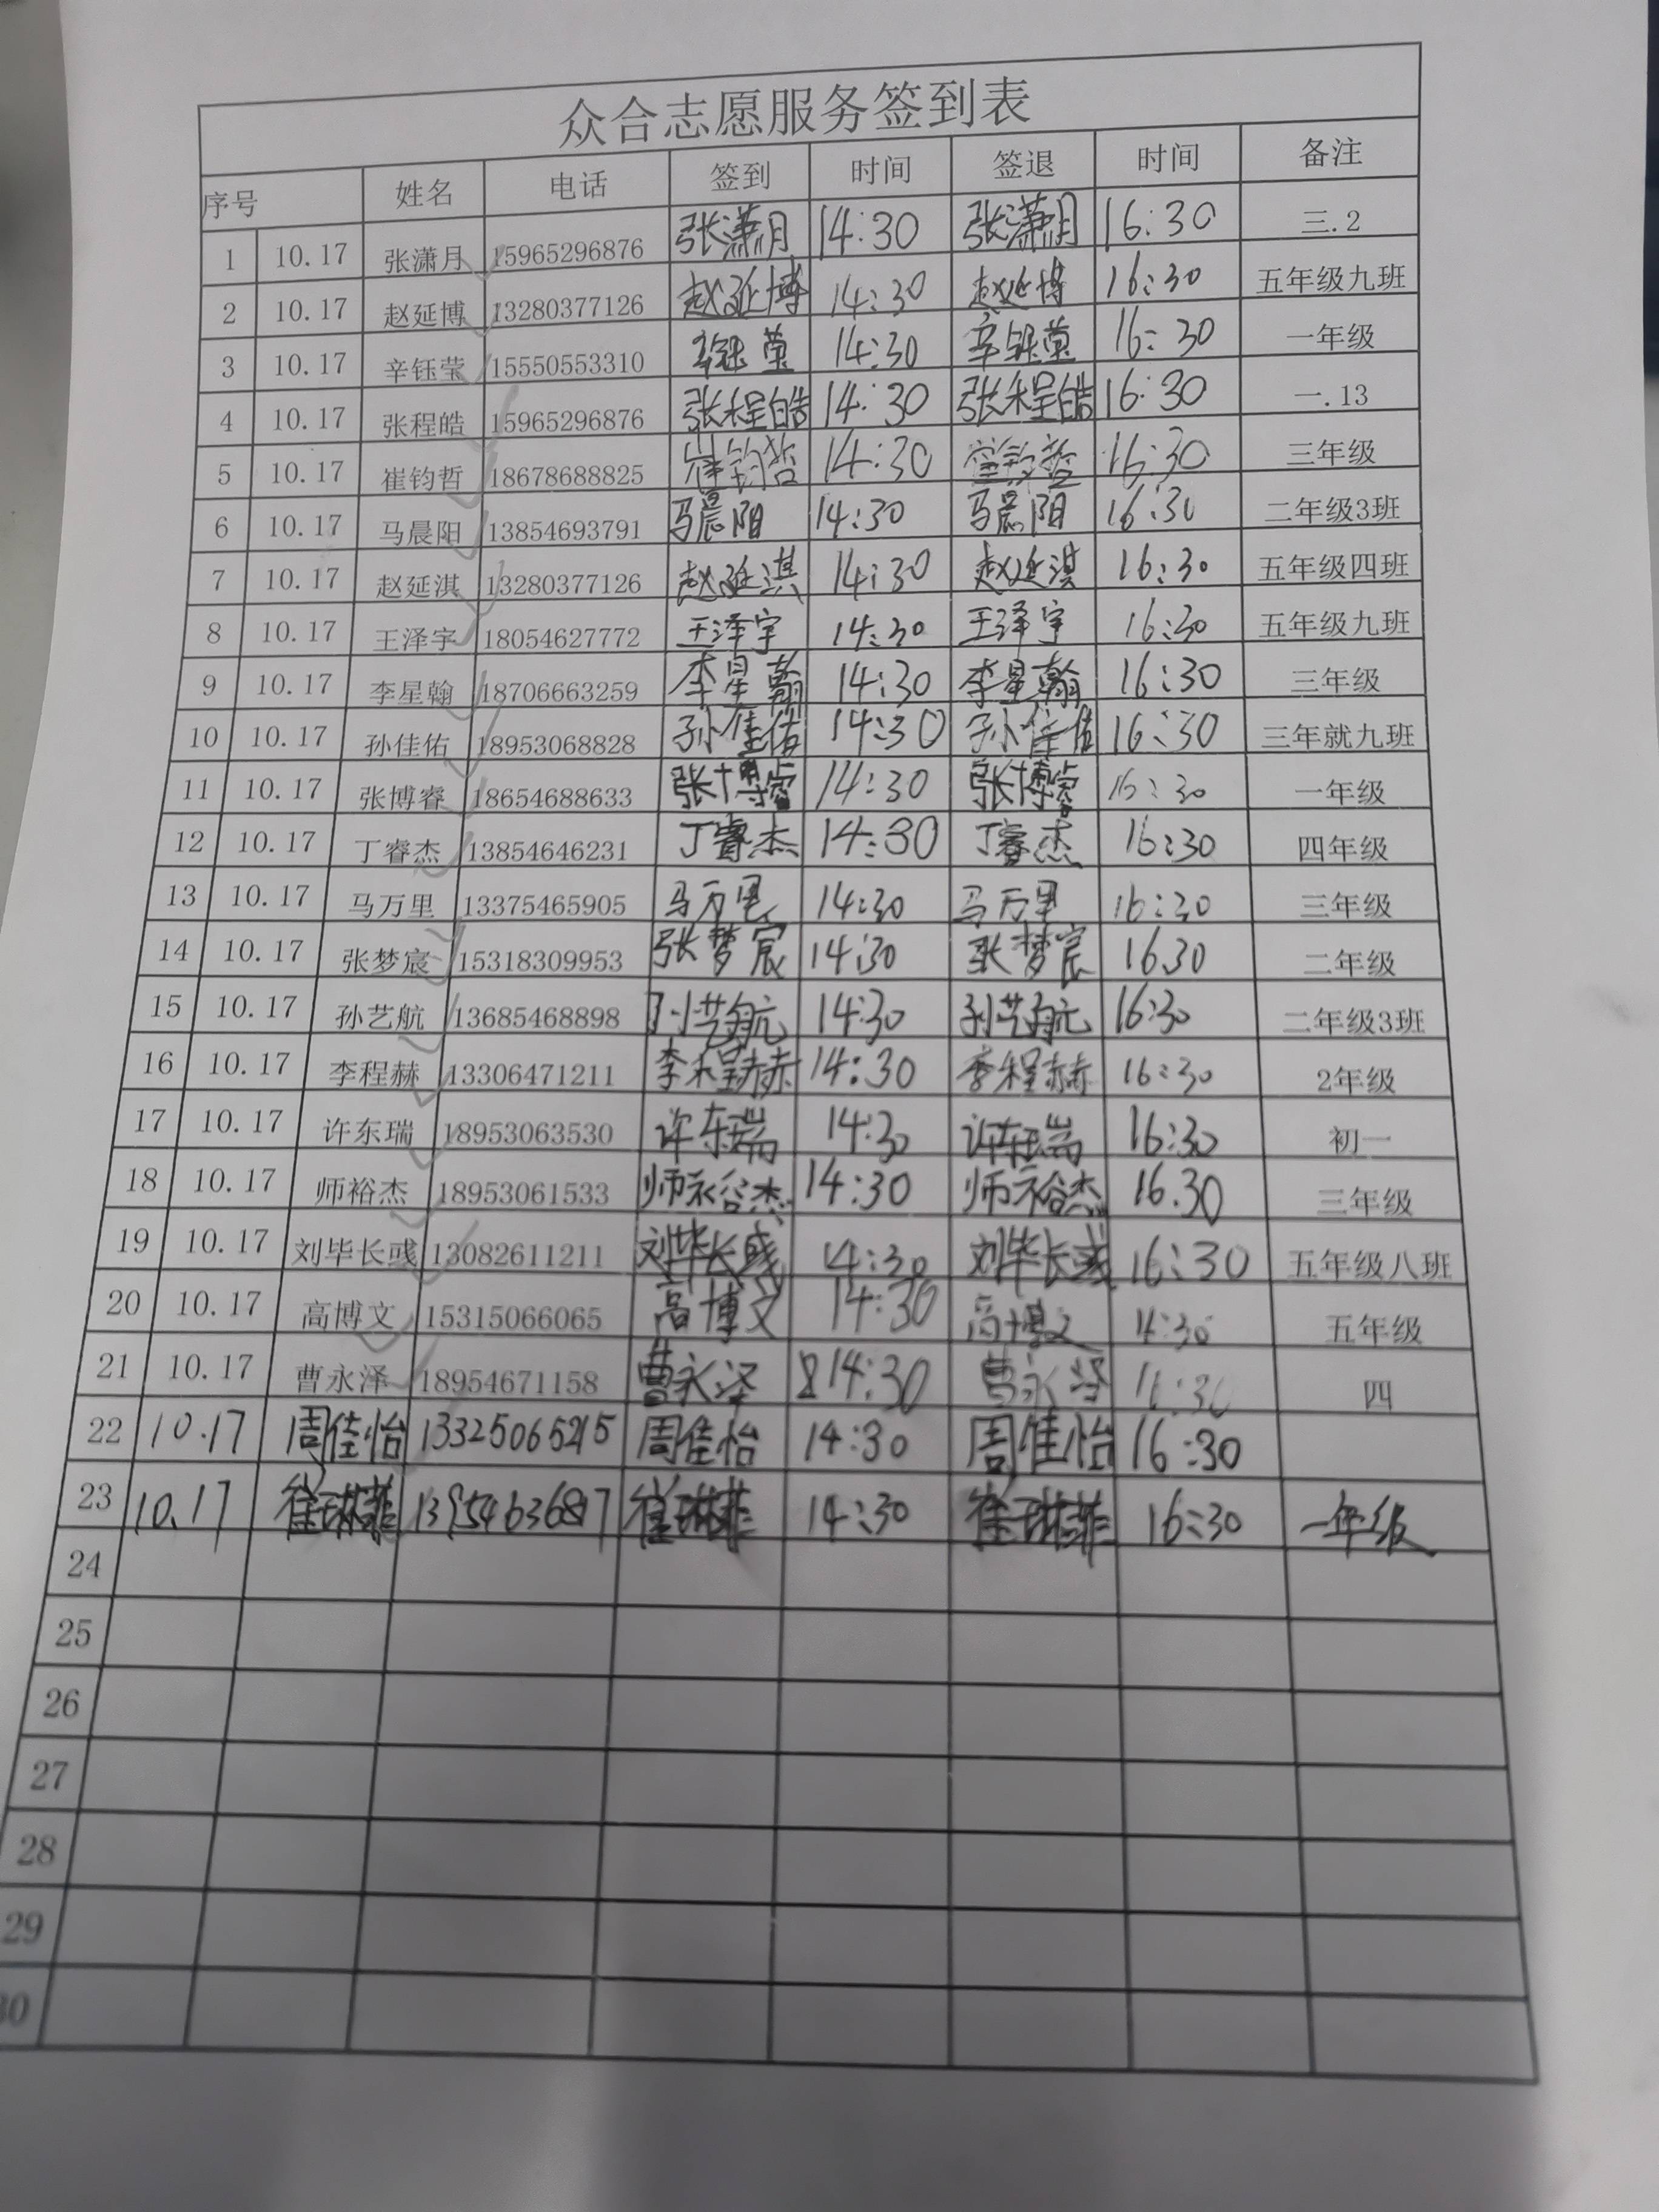 众合志愿服务签到表
序号 姓名 电话 签到 时间 签退 时间 备注
1 10.17 张潇月 15965296876 张潇月 14:30 张潇月 16:30 三.2
2 10.17 赵延博 13280377126 赵延博 14:30 赵延博 16:30 五年级九班
3 10.17 辛钰莹 15550553310 辛钰莹 14:30 辛钰莹 16:30 一年级
4 10.17 张程皓 15965296876 张程皓 14:30 张程皓 16:30 一.13
5 10.17 崔钧哲 18678688825 崔钧哲 14:30 崔钧哲 16:30 三年级
6 10.17 马晨阳 13854693791 马晨阳 14:30 马晨阳 16:30 二年级3班
7 10.17 赵延淇 13280377126 赵延淇 14:30 赵延淇 16:30 五年级四班
8 10.17 王泽宇 18054627772 王泽宇 14:30 王泽宇 16:30 五年级九班
9 10.17 李星翰 18706663259 李星翰 14:30 李星翰 16:30 三年级
10 10.17 孙佳佑 18953068828 孙佳佑 14:30 孙佳佑 16:30 三年就九班
11 10.17 张博睿 18654688633 张博睿 14:30 张博睿 16:30 一年级
12 10.17 丁睿杰 13854646231 丁睿杰 14:30 丁睿杰 16:30 四年级
13 10.17 马万里 13375465905 马万里 14:30 马万里 16:30 三年级
14 10.17 张梦宸 15318309953 张梦宸 14:30 张梦宸 16.30 二年级
15 10.17 孙艺航 13685468898 孙艺航 14:30 孙艺航 16:30 二年级3班
16 10.17 李程赫 13306471211 李程赫 14:30 李程赫 16:30 2年级
17 10.17 许东瑞 18953063530 许东瑞 14:30 许东瑞 16:30 初一
18 10.17 师裕杰 18953061533 师裕杰 14:30 师裕杰 16.30 三年级
19 10.17 刘毕长彧 13082611211 刘毕长彧 14:30 刘毕长彧 16:30 五年级八班
20 10.17 高博文 15315066065 高博文 14:30 高博文 16:30 五年级
21 10.17 曹永泽 18954671158 曹永泽 14:30 曹永泽 16:30 四
22 10.17 周佳怡 13325065215 周佳怡 14:30 周佳怡 16:30
23 10.17 崔琳菲 13954636817 崔琳菲 14:30 崔琳菲 16:30 一年级
24
25
26
27
28
29
30